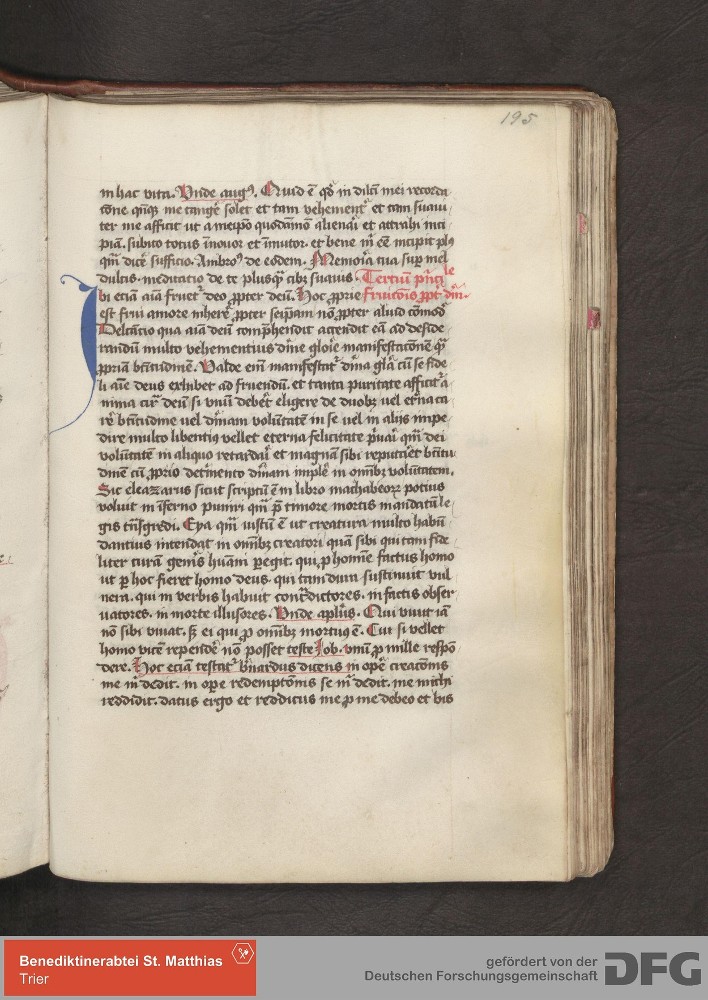 195
in hac vita. Vnde aug9. Quid ē qd̄ in dilc̄i mei recorda
tōne qn̄q3 me tangē solet et tam vehement᷑ et tam suaui
ter me afficit ut a meip̄o quodāmō alienai᷑ et attrahi inci
piā. subito totus innouor et īmutor. et bene m̄ eē incipit pl9
qm̄ dic̄e sufficio. Ambro9 de eodem. Memoīa tua sup̄ mel
dulcis. meditatio de te plusq̄ cib3 suauis. Terciū p̄nci
le
bi eciā aīa fruet᷑ deo ꝓpter deū. Hoc ꝓprie fruicōis ꝓpt᷑ dm̄.
est frui amore inherē ꝓpter seip̄am nō ꝓpter aliud cōmod᷑
Delcātio qua aīa deū comp̄hendit accendit eā ad deside
randū multo vehementius dīne gloīe manifestacōnem q̄
ꝓpriā btītudinē. Valde em̄ manifestat᷑ dīna glā cū se fide
li aīe deus exhibet ad fruendū. et tanta puritate afficit᷑ a
nima cir᷑ deū si vnū deber᷑ eligere de duob3 uel et᷑na ca
rē btītudine uel dīnam volūtatē in se uel in alijs impe
dire multo libenti9 vellet eterna felicitate p̄uai᷑ qm̄ dei
volūtatē in aliquo retardai᷑ et magnā sibi reputaēt btītu
dinē cū ꝓprio det᷑mento dīnam implē in omīb3 volūtatem.
Sic eleazarus sicut scriptū ē in libro machabeoꝝ potius
voluit in īferno puniri qm̄ p̄ timore mortis mandatū le
gis tn̄sgredi. Eya qm̄ iustū ē ut creatura multo habū
dantius intendat in omīb3 creatori quā sibi qui tam fide
liter curā geīs hūani ꝑegit. qui ꝓ homīe factus homo
ut ꝑ hoc fieret homo deus. qui tam dura sustinuit vul
nera. qui in verbis habuit cont᷑dictores. in factis obser
uatores. in morte illusores. Vnde apl̄us. Qui viuit iā
nō sibi viuat. s3 ei qui ꝓ omīb3 mortu9 ē. Cui si vellet
homo vicē rependē nō posset teste Job. vnū ꝓ mille respō
dere. Hoc eciā testat᷑ bn̄ardus dicens in opē creacōnis
me m̄ dedit. in opē redemptōnis se m̄ dedit. me michi
reddidit. datus ergo et redditus me ꝓ me debeo et bis
Benediktinerabtei St. Matthias
Trier
gefördert von der
Deutschen Forschungsgemeinschaft
DFG